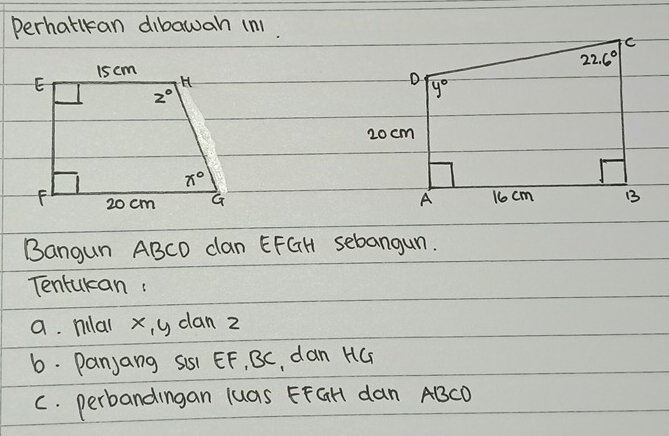 Perhatikan dibawah ini.
15 cm
E
H
z°
x°
F
20 cm
G
C
22.6°
D
y°
20 cm
A
16 cm
B
Bangun ABCD dan EFGH sebangun.
Tentukan :
a. nilai x, y dan z
b. Panjang sisi EF, BC, dan HG
c. perbandingan luas EFGH dan ABCD